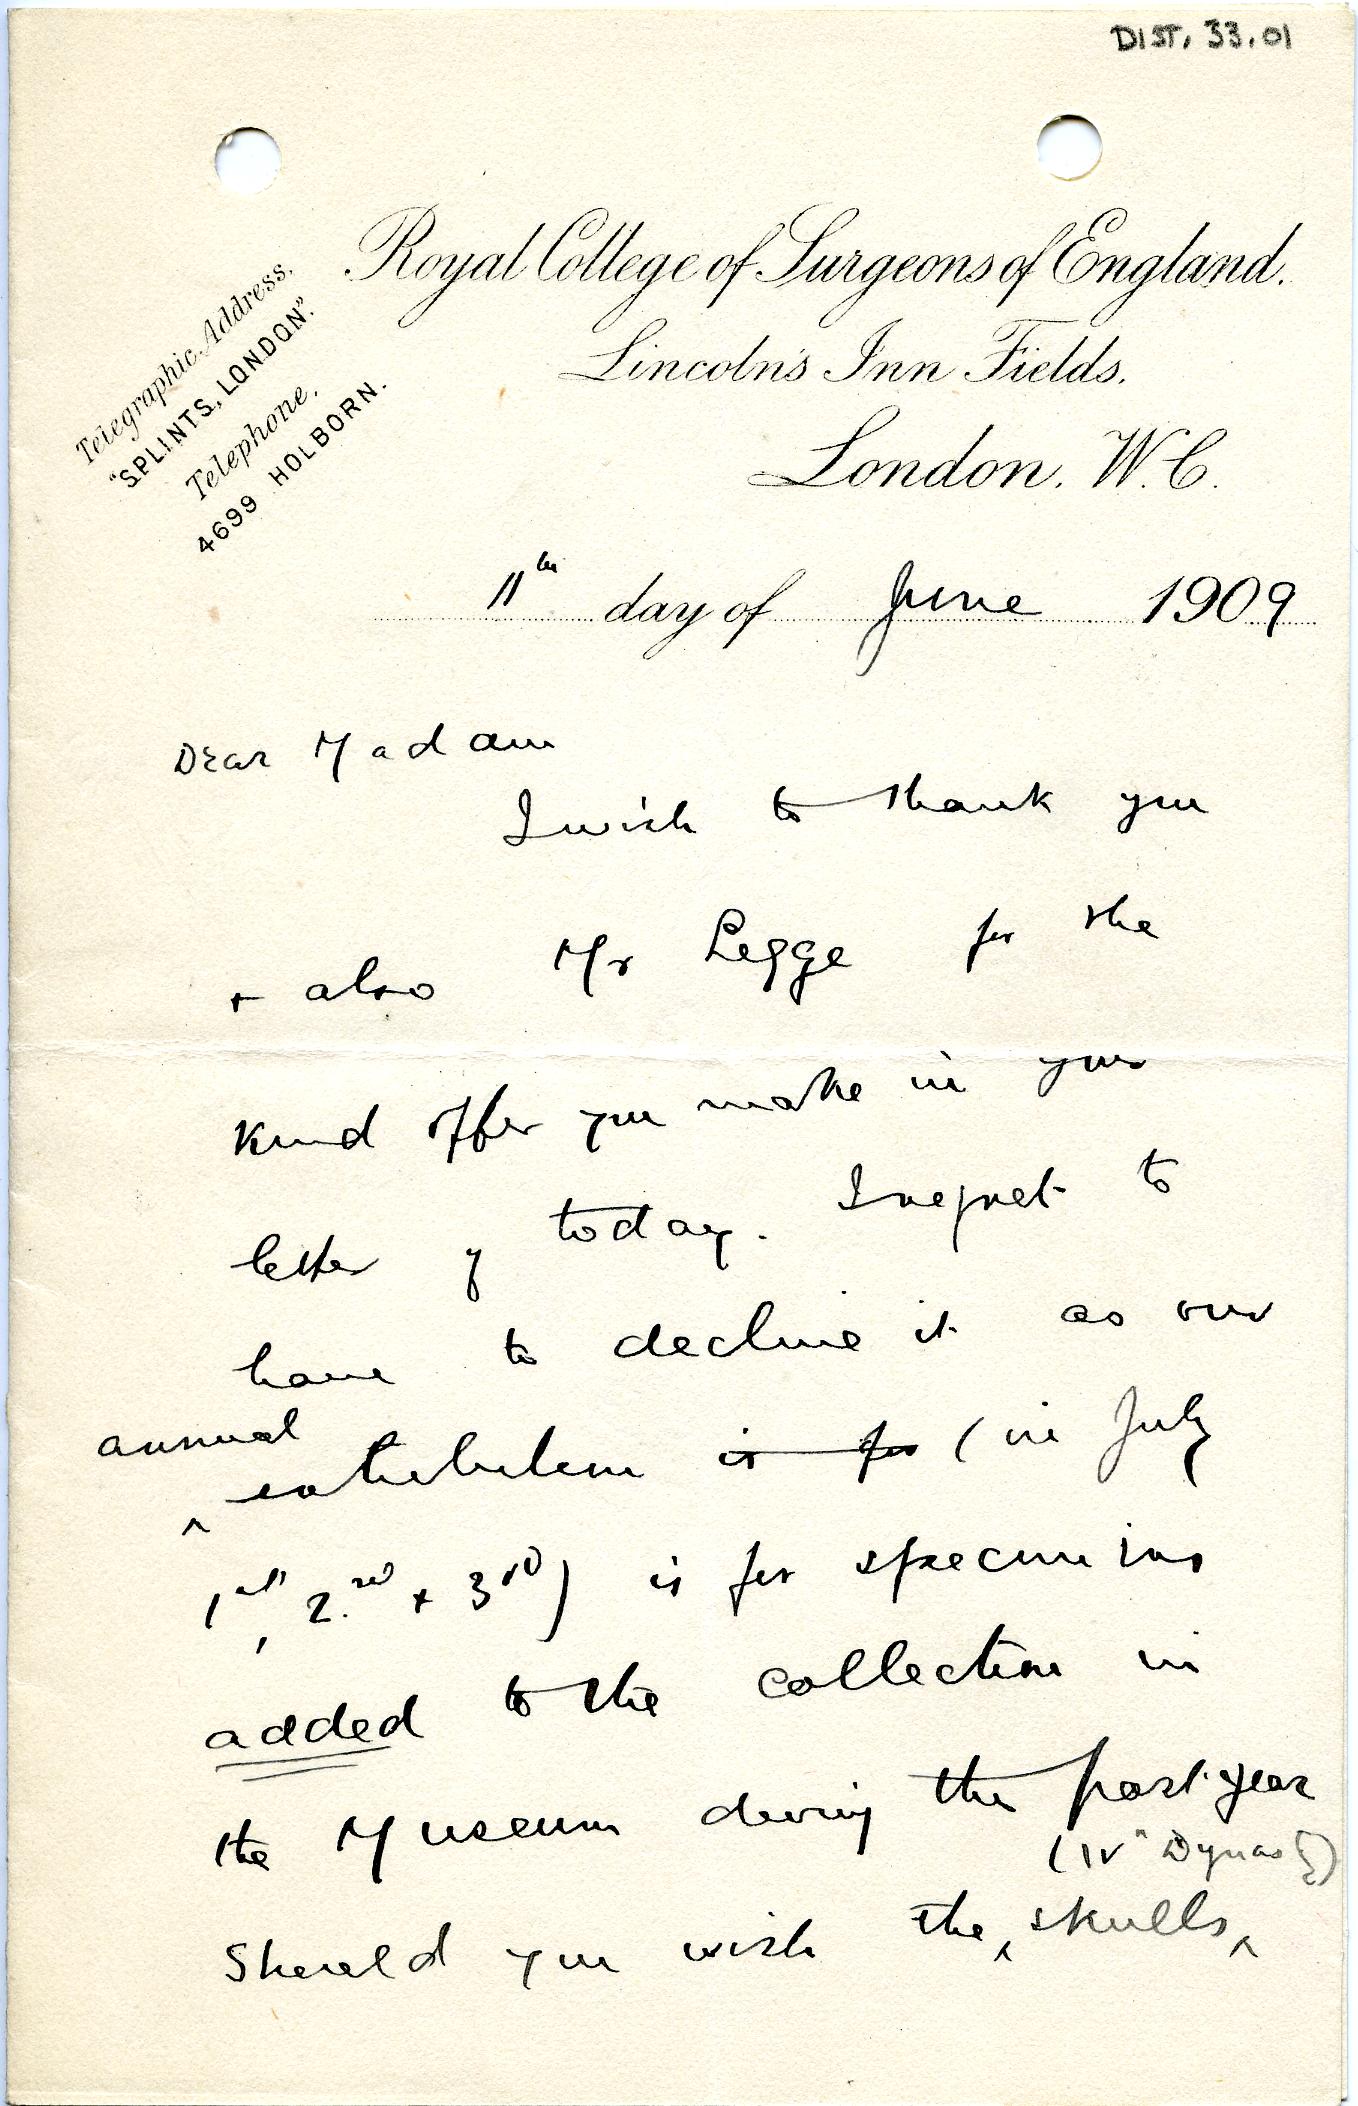 DIST. 33.01
Royal College of Surgeons of England.
Lincoln's Inn Fields.
London. W.C.
Telegraphic Address.
"SPLINTS, LONDON."
Telephone.
4699 HOLBORN.
11th day of June 1909
Dear Madam
I wish to thank you
+ also Mr Legge for the
kind offer you make in your
letter of today. I regret to
have to decline it as our
annual
^ exhibition is for (in July
1st, 2nd + 3rd) is for specimens
added to the collection in
the Museum during the past year
(IV Dynasty)
Should you wish the ^ skulls ^